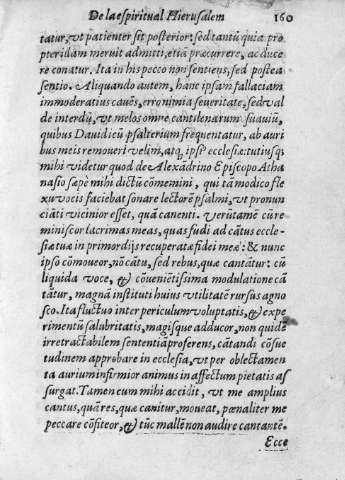 De la espiritual Hierusalem 160
tatur, vt patienter sit posterior: sed tantū quia pro
pter illam meruit admitti, etiā præcurrere, ac duce
re conatur. Ita in his pecco non sentiens, sed postea
sentio. Aliquando autem, hanc ipsam fallaciam
immoderatius cauēs, erro nimia seueritate, sed val
de interdū, vt melos omne cantilenarum suauiū,
quibus Dauidicū psalterium frequentatur, ab auri
bus meis remoueri velim, atq, ipsiº ecclesiæ: tutiusq;
mihi videtur quod de Alexādrino Episcopo Atha
nasio sæpè mihi dictū cōmemini, qui tā modico fle
xu vocis faciebat sonare lectorē psalmi, vt pronun
ciāti vicinior esset, quā canenti. Verūtamē cū re
miniscor lacrimas meas, quas fudi ad cātus eccle-
siæ tuæ in primordijs recuperatæ fidei meæ: & nunc
ipso cōmoueor, nō cātu, sed rebus, quæ cantātur: cū
liquida voce, & cōuenietissima modulatione cā
tātur, magnā instituti huius vtilitatē rursus agno
sco. Ita fluctuo inter periculum voluptatis, & expe
rimentū salubritatis, magisque adducor, non quidē
irretractabilem sententiā proferens, cātandi cōsue
tudinem approbare in ecclesia, vt per oblectamen
ta aurium infirmior animus in affectum pietatis as
surgat. Tamen cum mihi accidit, vt me amplius
cantus, quā res, quæ canitur, moueat, pœnaliter me
peccare cōfiteor, & tūc mallē non audire cantantē.
Ecce